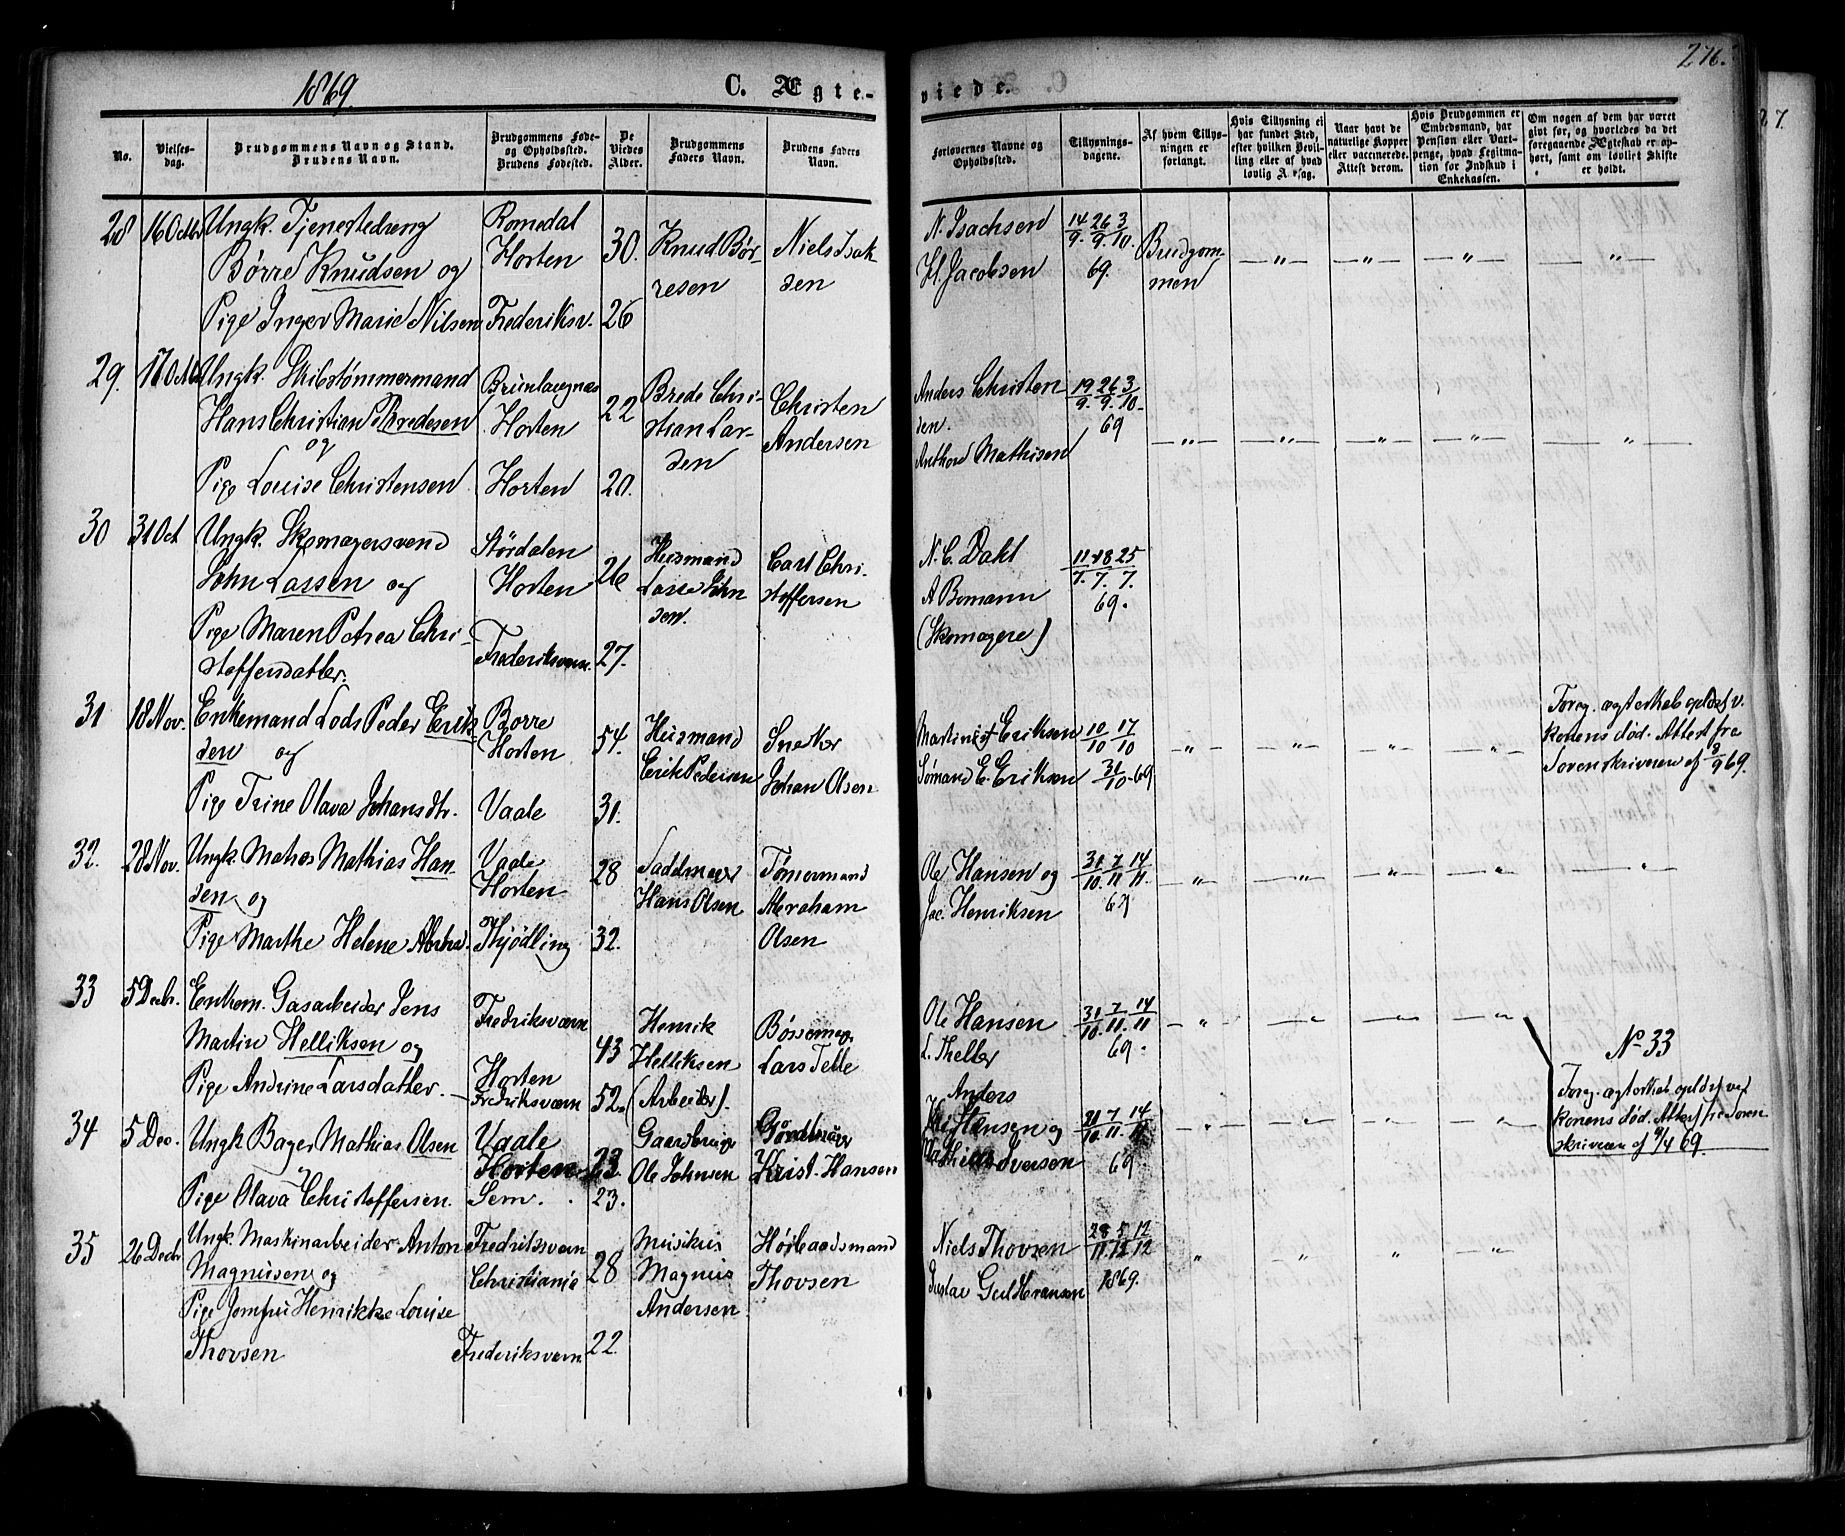 1869.
C. Ægte-
viede.
276.
27.
No.
Vielses-
dag.
Brudgommens Navn og Stand.
Brudens Navn.
Brudgommens Føde-
og Opholdssted.
Brudens Fødested.
De
Viedes
Alder.
Brudgommens
Faders Navn.
Brudens Faders
Navn.
Forlovernes Navne og
Opholdssted.
Tillysnings-
dagene.
Af hvem Tillys-
ningen er
forlangt.
Hvis Tillysning ei
har fundet Sted,
efter hvilken Bevil-
ling eller af hvad
lovlig Aarsag.
Naar havt de
naturlige Kopper
eller vaccinerede.
Attest derom.
Hvis Brudgommen er
Embedsmand, har
Pension eller Vart-
penge, hvad Legitima-
tion for Indskud i
Enkekassen.
Om nogen af dem har været
givt før, og hvorledes da det
foregaaende Ægteskab er op-
hørt, samt om lovligt Skifte
er holdt.
28 16 Octbr Ungk. Tjenestedreng Romsdal 30. Knud Bør- Niels Isak- N. Isachsen 14/9. 26/9. 3/10. Brudgom-
Børre Knudsen og Horten resen sen H. Jacobsen 69. men
Pige Inger Marie Nilsen Frederiksv. 26
29. 17 Octb Ungk. Skibstømmermand Brunlaugnæs 22 Brede Chri- Christen Anders Christen 19/9. 26/9. 3/10.
Hans Christian Bredesen Horten stian Lar- Andersen sen. 69
og sen Anthon Mathisen
Pige Louise Christensen Horten 20.
30 31 Oct Ungk. Skomagersvend Størdalen 26 Husmand Carl Chri- N. C. Dahl 11/7. 18/7. 25/7.
John Lassen og Horten Lasse John stoffersen A Bomann 69.
Pige Maren Petrea Chri- sen. (Skomagere)
stoffersdatter. Frederiksværn. 27.
31 18 Nov. Enkemand Lods Peder Erik- Borre 54. Husmand Snekker Martinius Eriksen 10/10 17/10 Foreg. ægteskab opløst v.
sen og Horten Erik Pedersen Johan Olsen Sømand E. Eriksen 31/10-69 konens død. Attest fra
Pige Trine Olava Johansdtr. Vaale 31. Sorenskriveren af 8/9 69.
32. 28 Nov. Ungk. Matros Mathias Han- Vaale 28 Saddmager Tømermand Ole Hansen og 31/10. 7/11 14/11.
sen og Horten Hans Olsen Abraham Jac. Henriksen 69
Pige Marthe Helene Abrha. Thjødling 32. Olsen
33 5 Decbr. Enkem. Gasarbeider Jens Fredriksværn Henrik Bøssemag. Ole Hansen 31/10. 7/11. 14/11
Martin Helliksen og Horten 43 Helliksen Lars Telle L. Theller 69. No 33
Pige Andrine Larsdatter. Fredriksværn 52. (Arbeider). Foreg. ægteskab opløst ved
34 5 Dec. Ungk Bager Mathias Olsen Vaale 23 Gaardbruger Gjørdtmager Anders konens død. Attest fra Soren
Horten Ole Johnsen Krist. Hansen Hansen og 31/10. 7/11. 14/11 skriveren af 9/4 69.
Pige Olava Christoffersen. Sem. 23. Mathias Iversen 69
35 26 Decbr Ungk. Maskinarbeider Anton Fredriksværn 28 Musikus Hørbaadsmand Niels Thovsen 28/11. 5/12 12/12
Magnusen og Christiania Magnus Thovsen Gustav Guldbransen 1869.
Pige Jomfru Henrikke Louise Andersen
Thovsen Frederiksværn. 22.